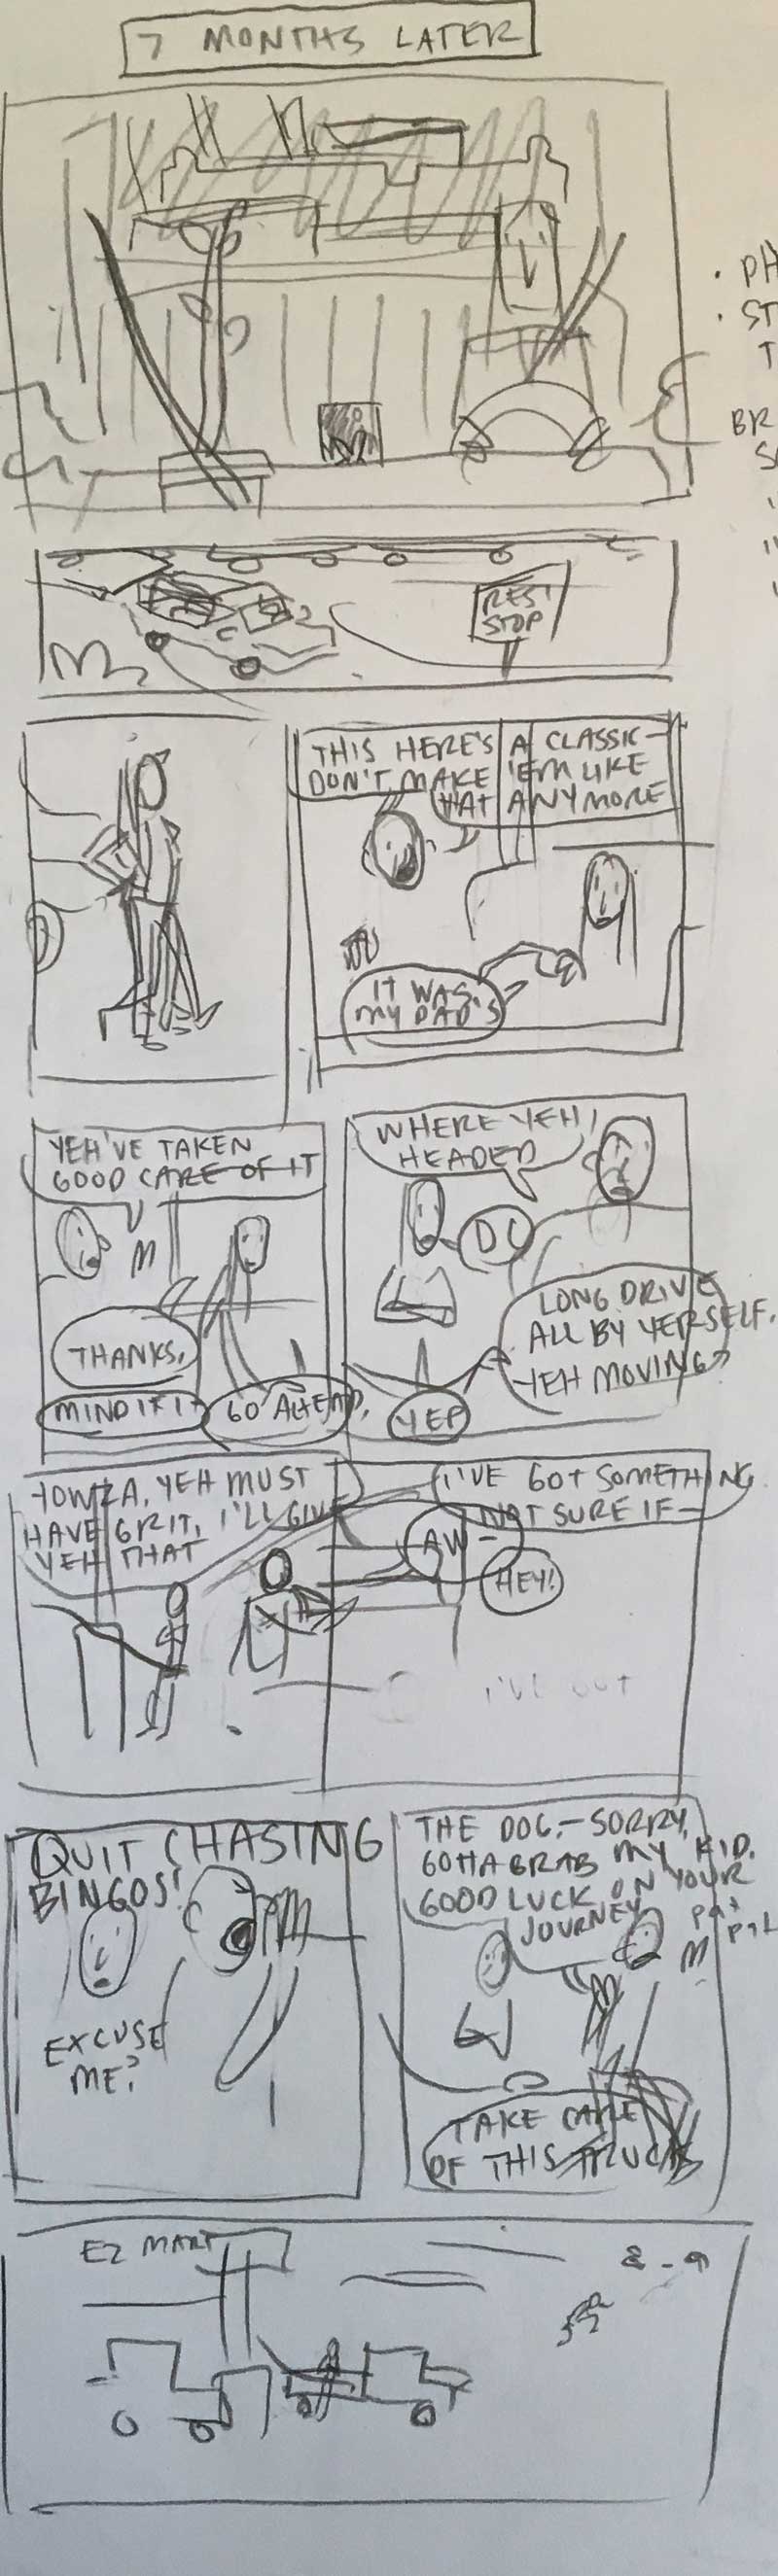 7 MONTHS LATER
• PH
• ST
T
BR
REST
STOP
THIS HERE'S A CLASSIC—
DON'T MAKE 'EM LIKE
THAT ANYMORE
IT WAS
MY DAD'S
YEH'VE TAKEN
GOOD CARE OF IT
THANKS.
MIND IF I—
GO AHEAD,
WHERE YEH
HEADED
DC
LONG DRIVE
ALL BY YERSELF.
YEH MOVING?
YEP
YOWZA, YEH MUST
HAVE GRIT, I'LL GIVE
YEH THAT
I'VE GOT SOMETHING
NOT SURE IF—
AW—
HEY!
I'VE GOT
QUIT CHASING
BINGOS!
EXCUSE
ME?
THE DOG.—SORRY,
GOTTA GRAB MY KID.
GOOD LUCK ON YOUR
JOURNEY
PAT
PAT
TAKE CARE
OF THIS TRUCK
EZ MART
8-9